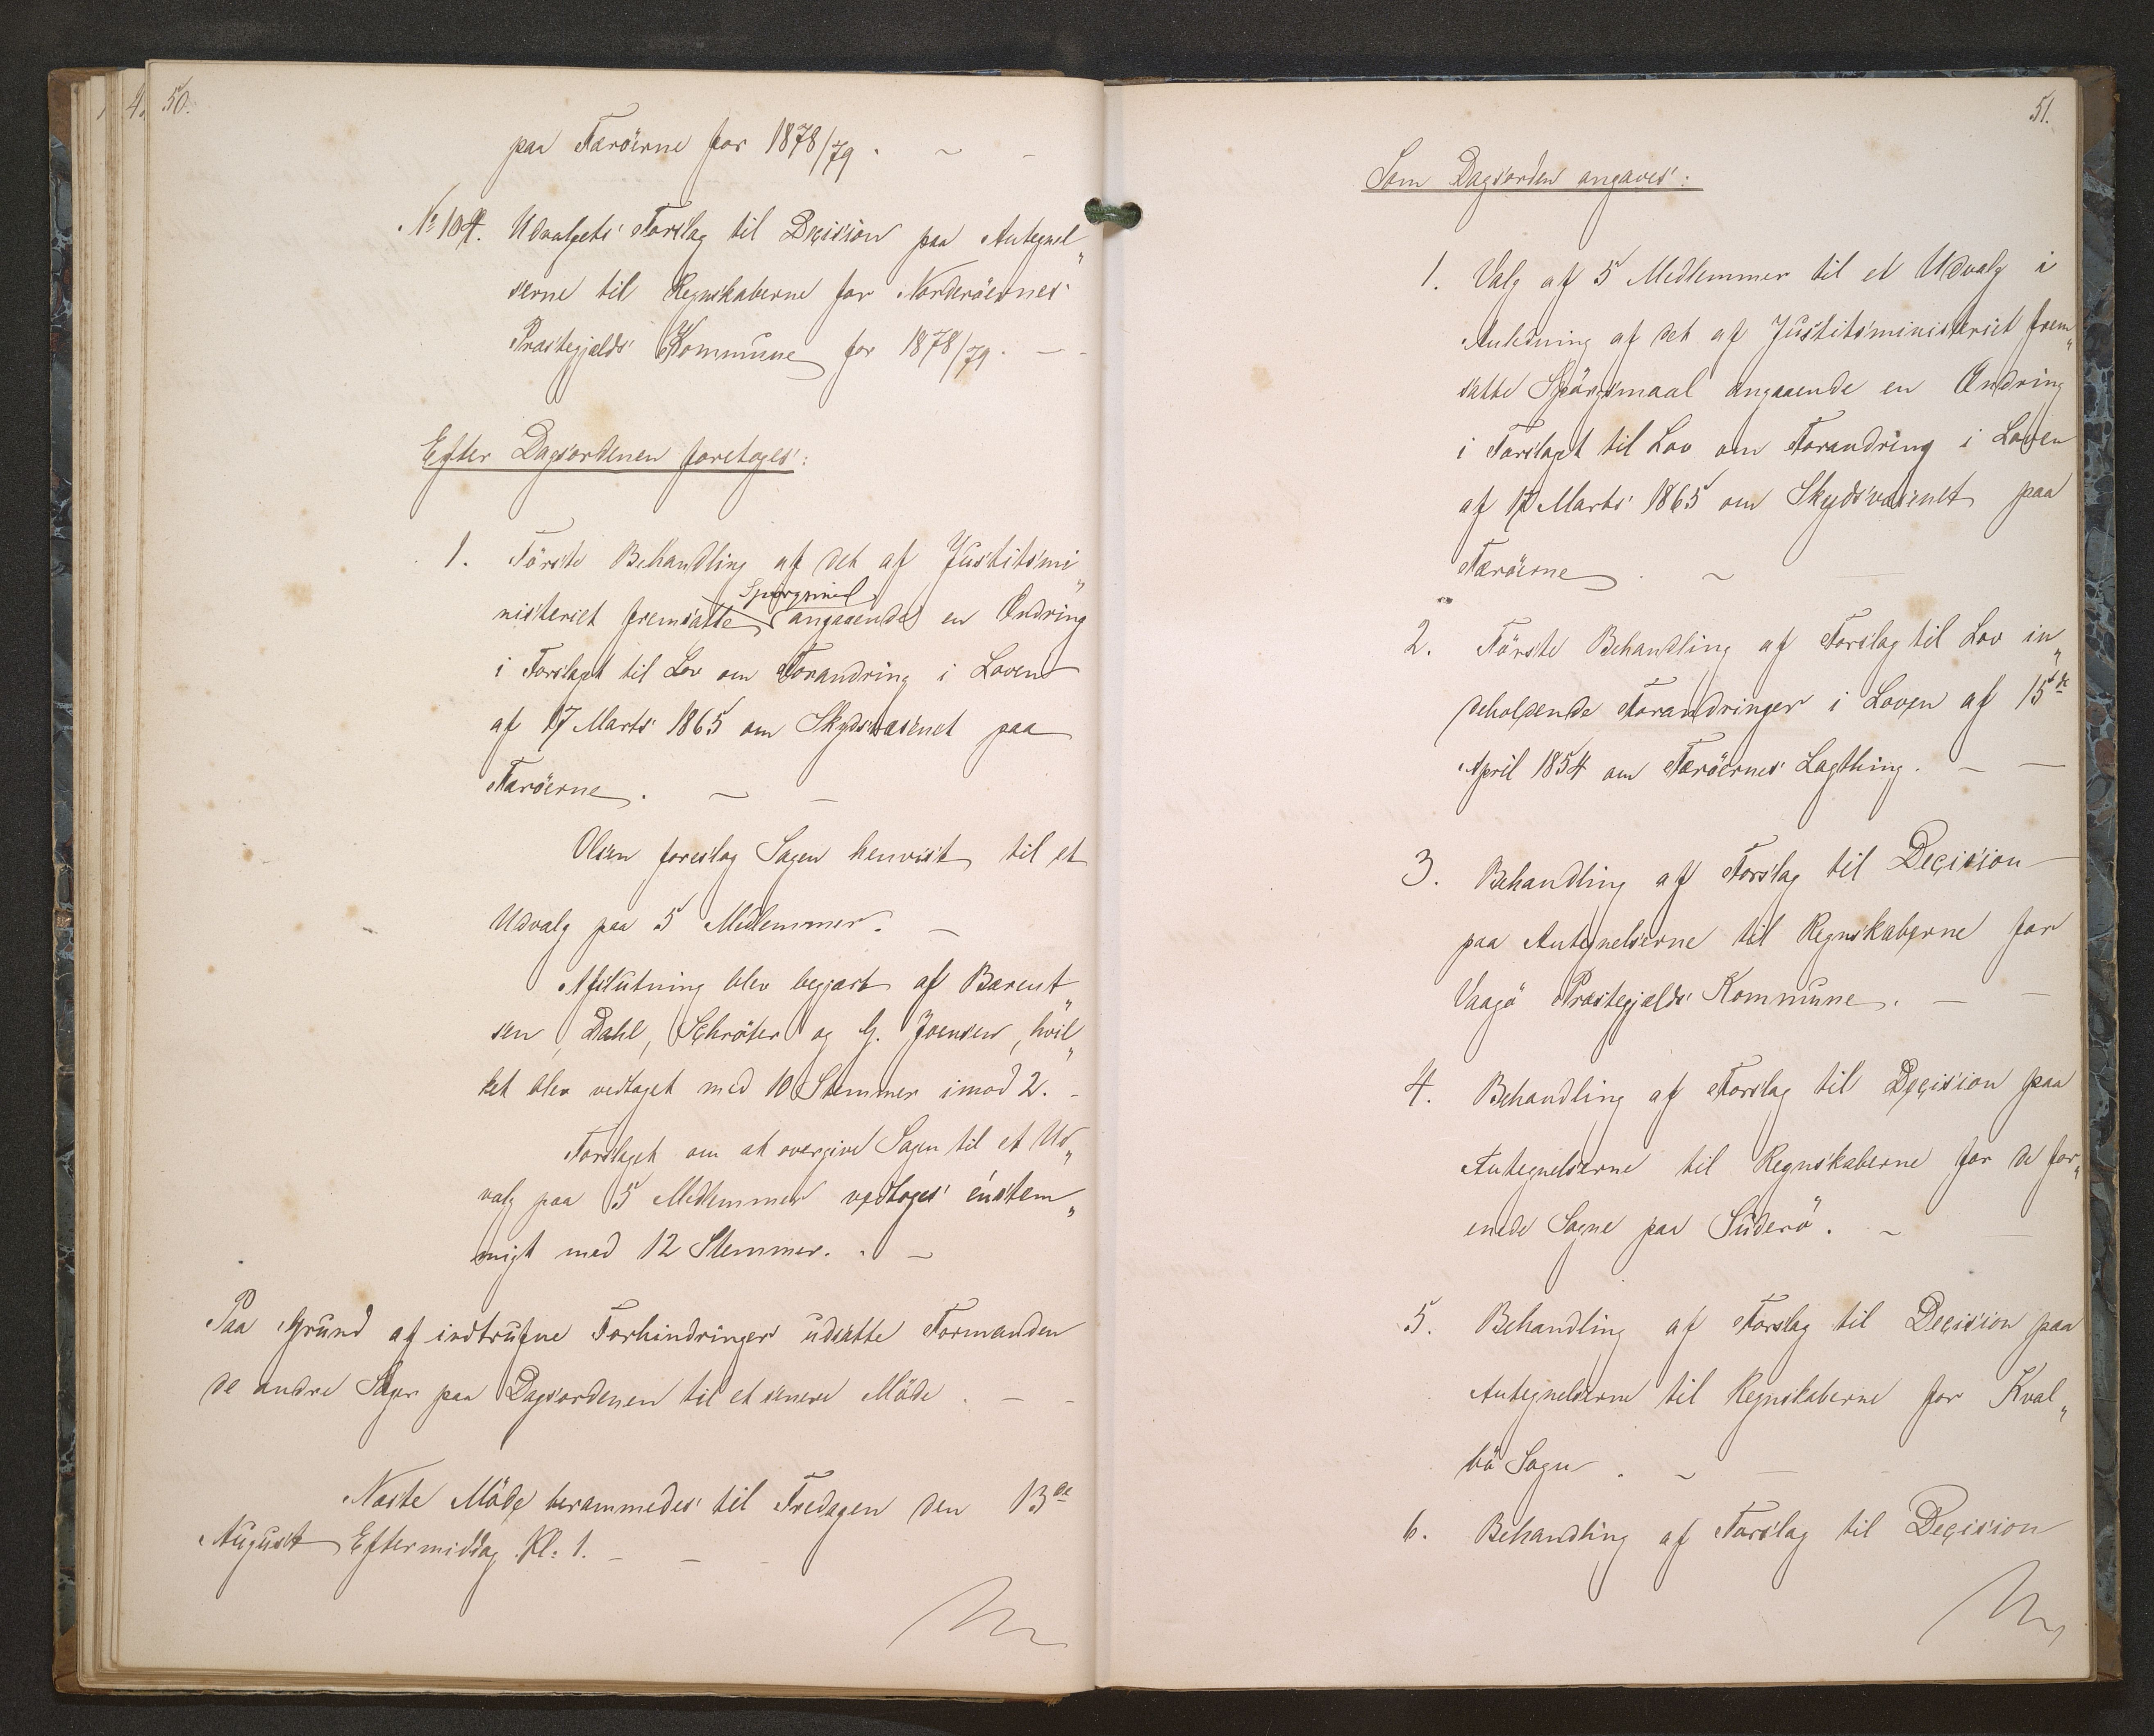 50.
paa Færöerne for 1878/79. ~ -
No 104. Udvalgets Forslag til Decision paa Antegnel„
serne til Regnskaberne for Norderöernes
Præstegjælds Kommune for 1878/79. — -
Efter Dagsordenen foretoges:
1. Förste Behandling af det af Justitsmi„
Spørgsmaal
nisteriet fremsatte angaaende en Ændring
i Forslaget til Lov om Forandring i Loven
af 17 Marts 1865 om Skydsvæsenet paa
Færöerne. ~ -
Olsen foreslog Sagen henvist til et
Udvalg paa 5 Medlemmer. —
Afslutning blev begjært af Barent„
sen, Dahl, Schröter og G. Joensen, hvil„
ket blev vedtaget med 10 Stemmer imod 2. -
Forslaget om at overgive Sagen til et Ud„
valg paa 5 Medlemmer vedtoges énstem„
migt med 12 Stemmer. —
Paa Grund af indtrufne Forhindringer udsatte Formanden
de andre Sager paa Dagsordenen til et senere Möde. — -
Næste Möde berammedes til Fredagen den 13de
August Eftermiddag Kl: 1. — — -
51.
Som Dagsorden angaves:
1. Valg af 5 Medlemmer til et Udvalg i
Anledning af det af Justitsministeriet frem„
satte Spörgsmaal angaaende en Ændring
i Forslaget til Lov om Forandring i Loven
af 17 Marts 1865 om Skydsvæsenet paa
Færöerne. ~
2. Förste Behandling af Forslag til Lov in„
deholdende Forandringer i Loven af 15de
April 1854 om Færöernes Lagthing. — —
3. Behandling af Forslag til Decision
paa Antegnelserne til Regnskaberne for
Vaagö Præstegjælds Kommune. — —
4. Behandling af Forslag til Decision paa
Antegnelserne til Regnskaberne for de for„
enede Sogne paa Suderö. ~ —
5. Behandling af Forslag til Decision paa
Antegnelserne til Regnskaberne for Kval„
bö Sogn. ~ —
6. Behandling af Forslag til Decision